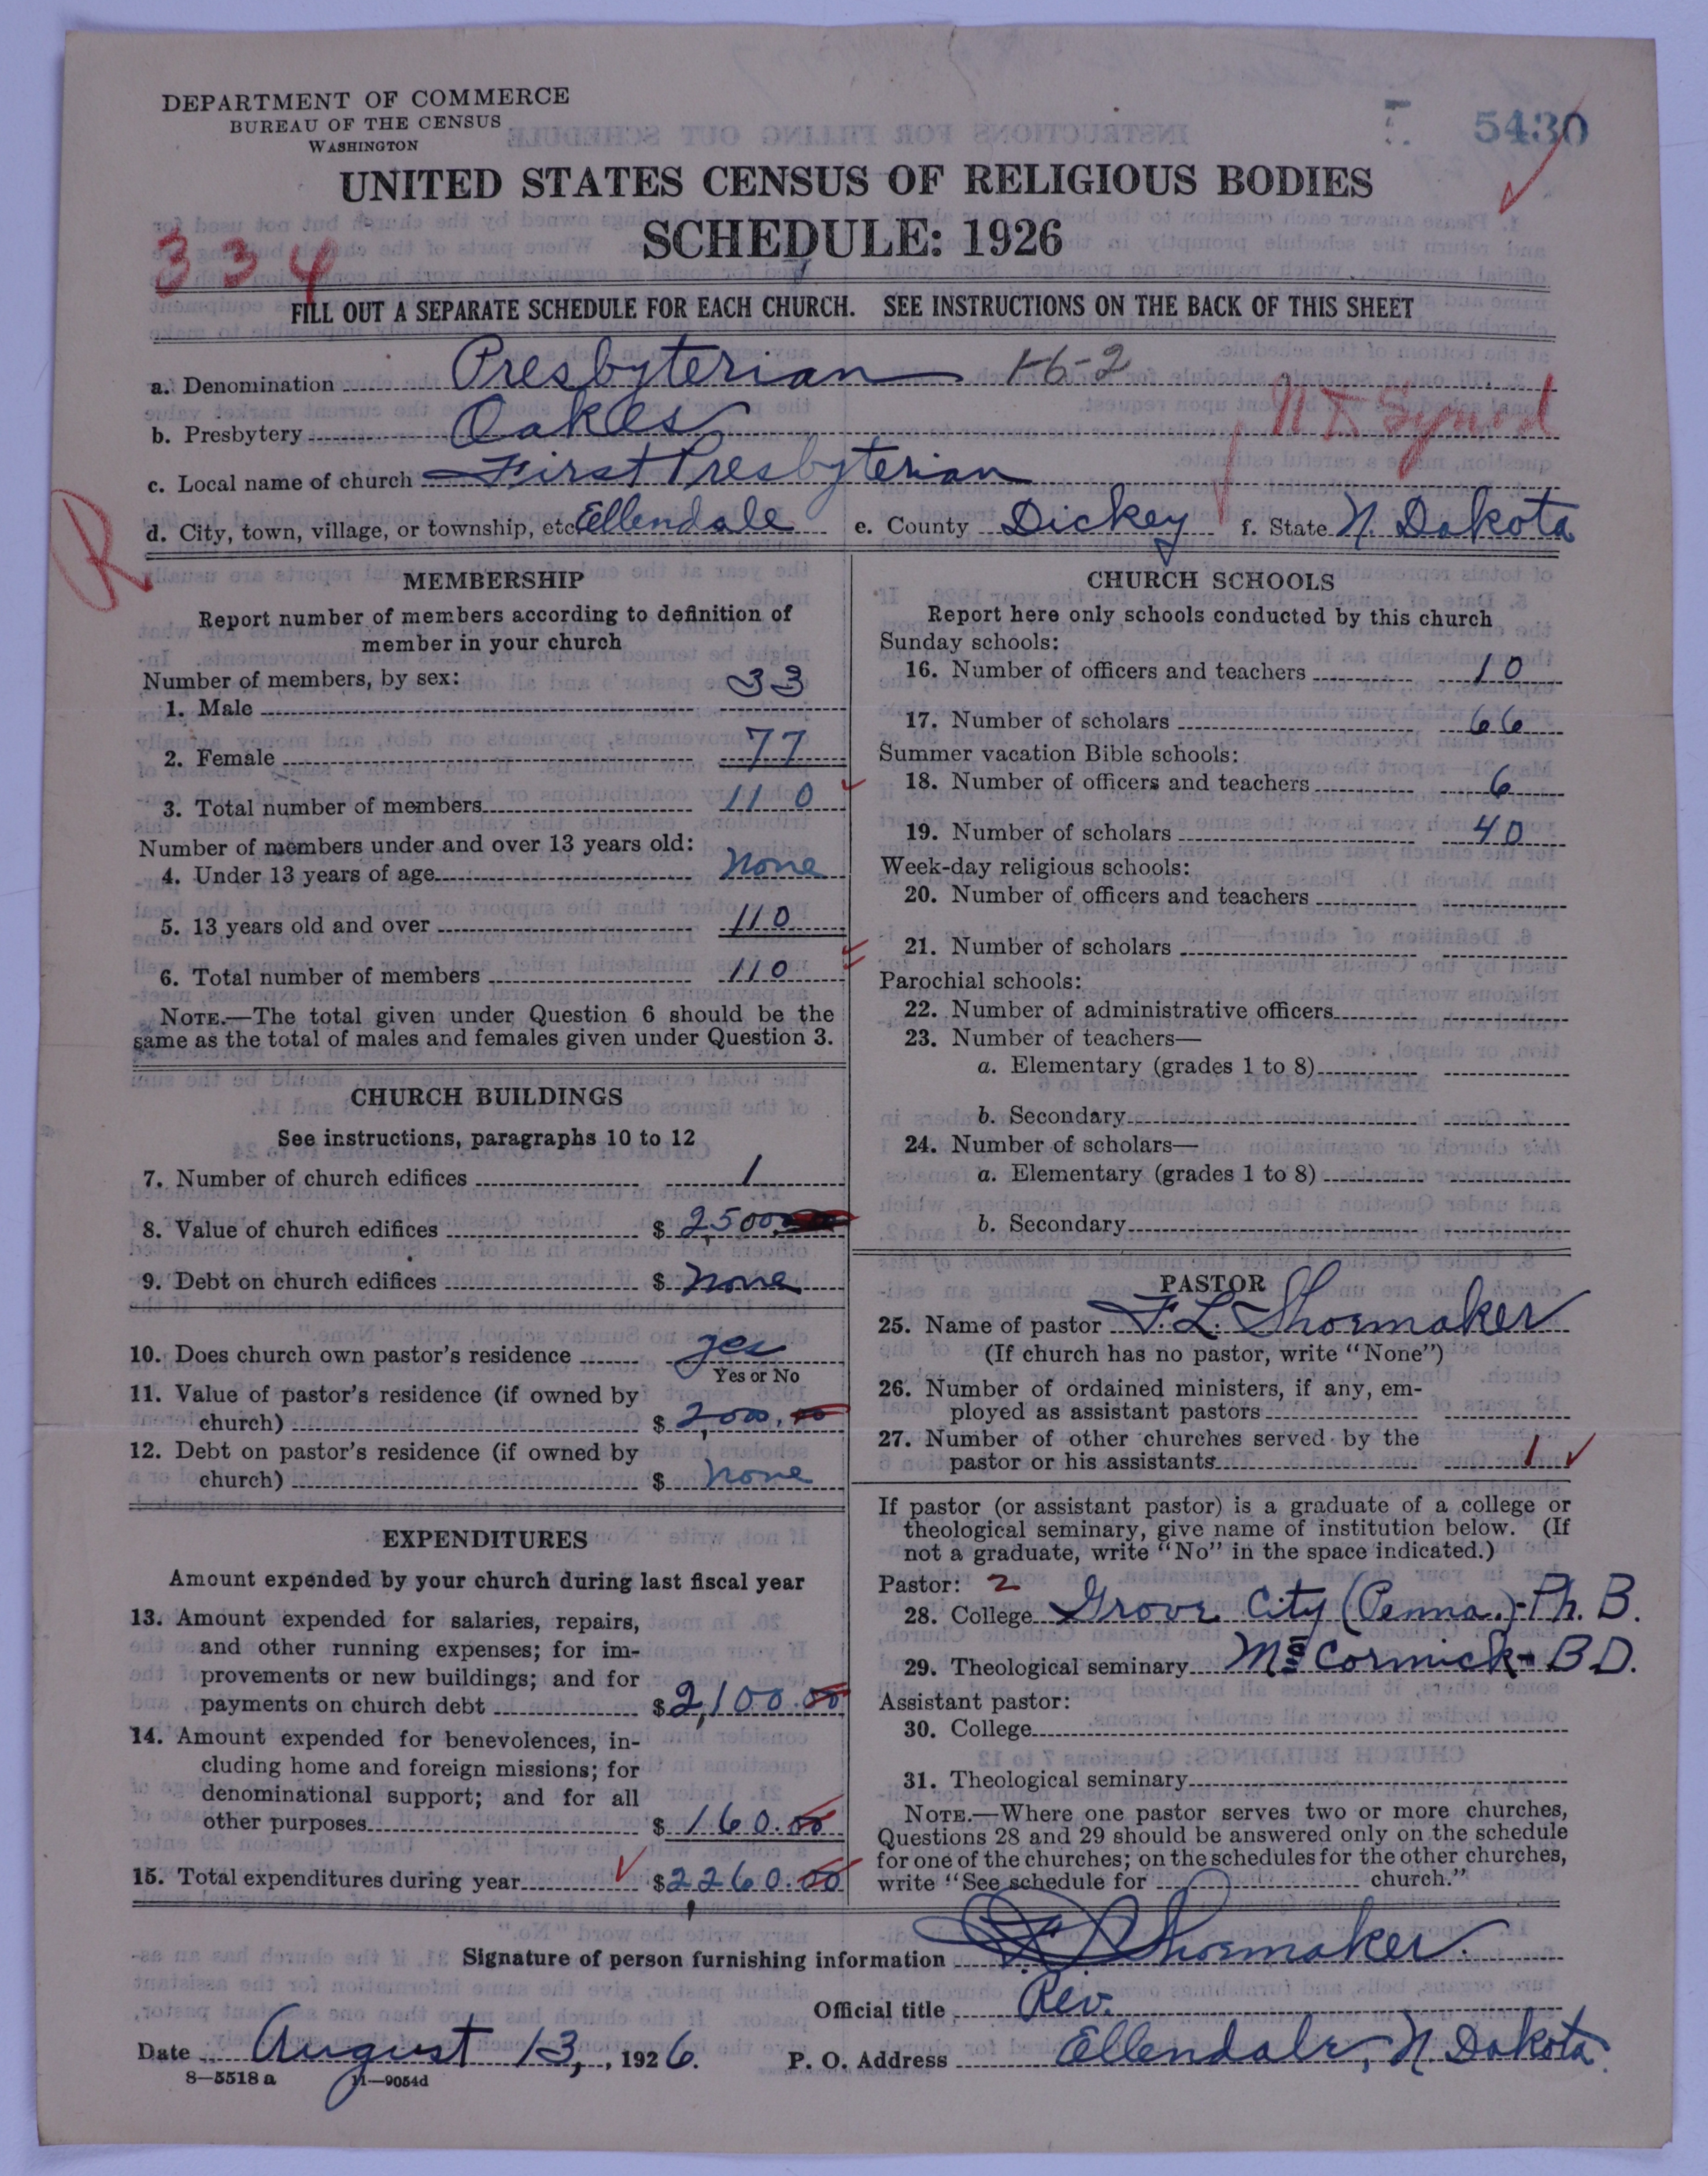 DEPARTMENT OF COMMERCE
BUREAU OF THE CENSUS
WASHINGTON
5430
UNITED STATES CENSUS OF RELIGIOUS BODIES
SCHEDULE: 1926
334
FILL OUT A SEPARATE SCHEDULE FOR EACH CHURCH. SEE INSTRUCTIONS ON THE BACK OF THIS SHEET
a. Denomination Presbyterian 1-6-2
b. Presbytery Oakes N D Synod
c. Local name of church First Presbyterian
R
d. City, town, village, or township, etc Ellendale e. County Dickey f. State N. Dakota
MEMBERSHIP
Report number of members according to definition of
member in your church
Number of members, by sex:
1. Male 33
2. Female 77
3. Total number of members 110
Number of members under and over 13 years old:
4. Under 13 years of age none
5. 13 years old and over 110
6. Total number of members 110
NOTE.—The total given under Question 6 should be the
same as the total of males and females given under Question 3.
CHURCH BUILDINGS
See instructions, paragraphs 10 to 12
7. Number of church edifices 1
8. Value of church edifices $ 2,500
9. Debt on church edifices $ none
10. Does church own pastor's residence yes
Yes or No
11. Value of pastor's residence (if owned by
church) $ 2,000.00
12. Debt on pastor's residence (if owned by
church) $ none
EXPENDITURES
Amount expended by your church during last fiscal year
13. Amount expended for salaries, repairs,
and other running expenses; for im-
provements or new buildings; and for
payments on church debt $ 2,100.00
14. Amount expended for benevolences, in-
cluding home and foreign missions; for
denominational support; and for all
other purposes $ 160.00
15. Total expenditures during year $ 2,260.00
CHURCH SCHOOLS
Report here only schools conducted by this church
Sunday schools:
16. Number of officers and teachers 10
17. Number of scholars 66
Summer vacation Bible schools:
18. Number of officers and teachers 6
19. Number of scholars 40
Week-day religious schools:
20. Number of officers and teachers
21. Number of scholars
Parochial schools:
22. Number of administrative officers
23. Number of teachers—
a. Elementary (grades 1 to 8)
b. Secondary
24. Number of scholars—
a. Elementary (grades 1 to 8)
b. Secondary
PASTOR
25. Name of pastor F. L. Shoemaker
(If church has no pastor, write "None")
26. Number of ordained ministers, if any, em-
ployed as assistant pastors
27. Number of other churches served by the
pastor or his assistants 1
If pastor (or assistant pastor) is a graduate of a college or
theological seminary, give name of institution below. (If
not a graduate, write "No" in the space indicated.)
Pastor: 2
28. College Grove City (Penna.)-Ph. B.
29. Theological seminary McCormick - B D.
Assistant pastor:
30. College
31. Theological seminary
NOTE.—Where one pastor serves two or more churches,
Questions 28 and 29 should be answered only on the schedule
for one of the churches; on the schedules for the other churches,
write "See schedule for church."
Signature of person furnishing information F L Shoemaker.
Official title Rev.
Date August 13, 1926. P. O. Address Ellendale, N. Dakota.
8—5518 a 11—9054d